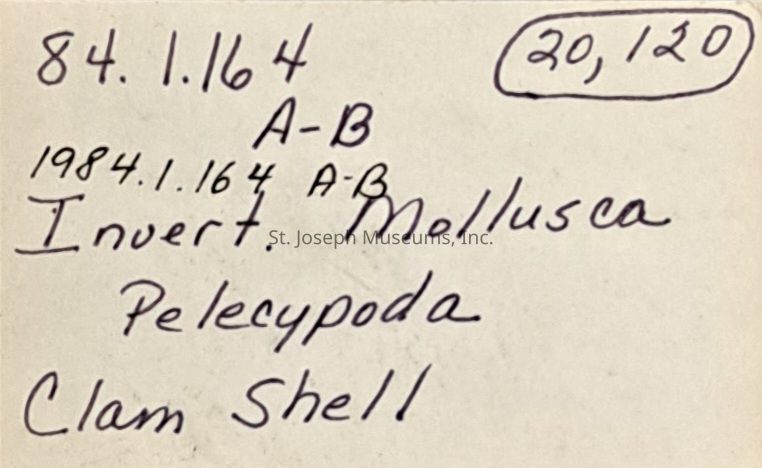 84.1.164 20,120
A-B
1984.1.164 A-B
Invert. Mollusca
St. Joseph Museums, Inc.
Pelecypoda
Clam Shell